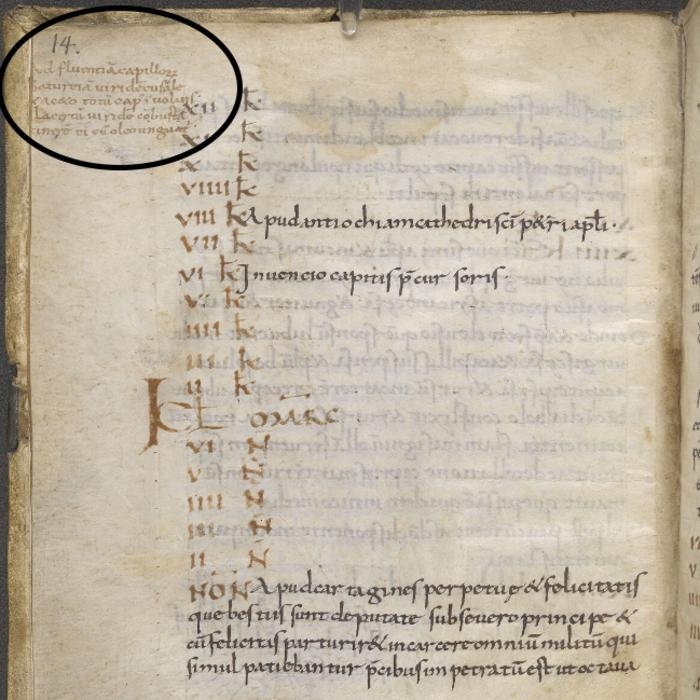 14.
ad fluentiā capillorz
xii k
k
x k
viiii k
viii k Apud antiochiam cathedri sci p&ri apłi.
vii k
vi k Inuencio capitis p̄cur soris.
v k
iiii k
iii k
ii k
KL mar
vi N
v N
iiii N
iii N
ii N
NON Apud cartagines perpetuę & felicitatis
que bestiis sunt deputate sub seuero principe &
cū felicitis parturir& in carcere omniū militū qui
simul patiebantur p̄cibus impetratū est ut octaua